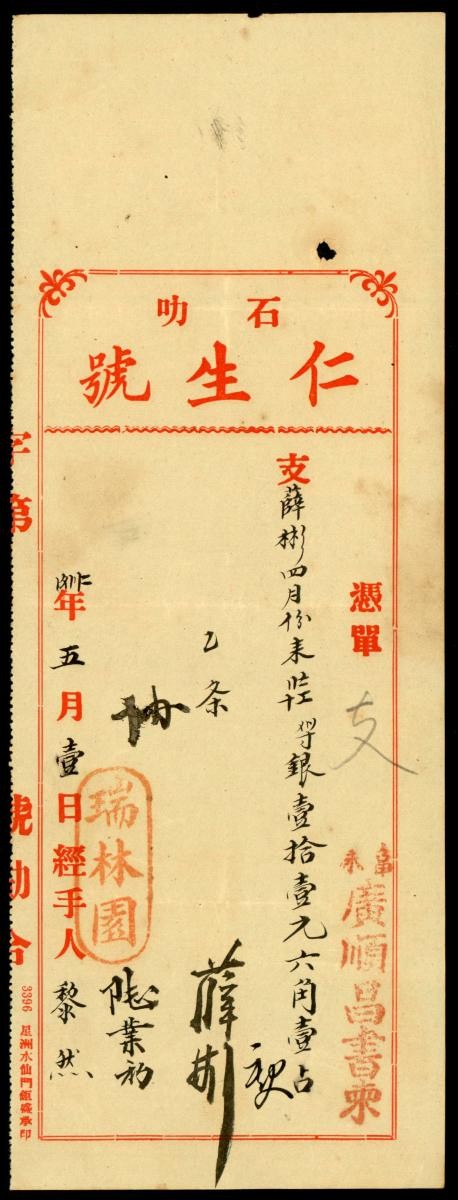 石叻
仁生號
憑單
支
廣順昌書柬
支薛彬四月份來 銀壹拾壹元六角壹占
乙条
薛彬
瑞林園
年五月壹日經手人黎然
字第 號勘合
3396 星洲水仙門鉅盛承印